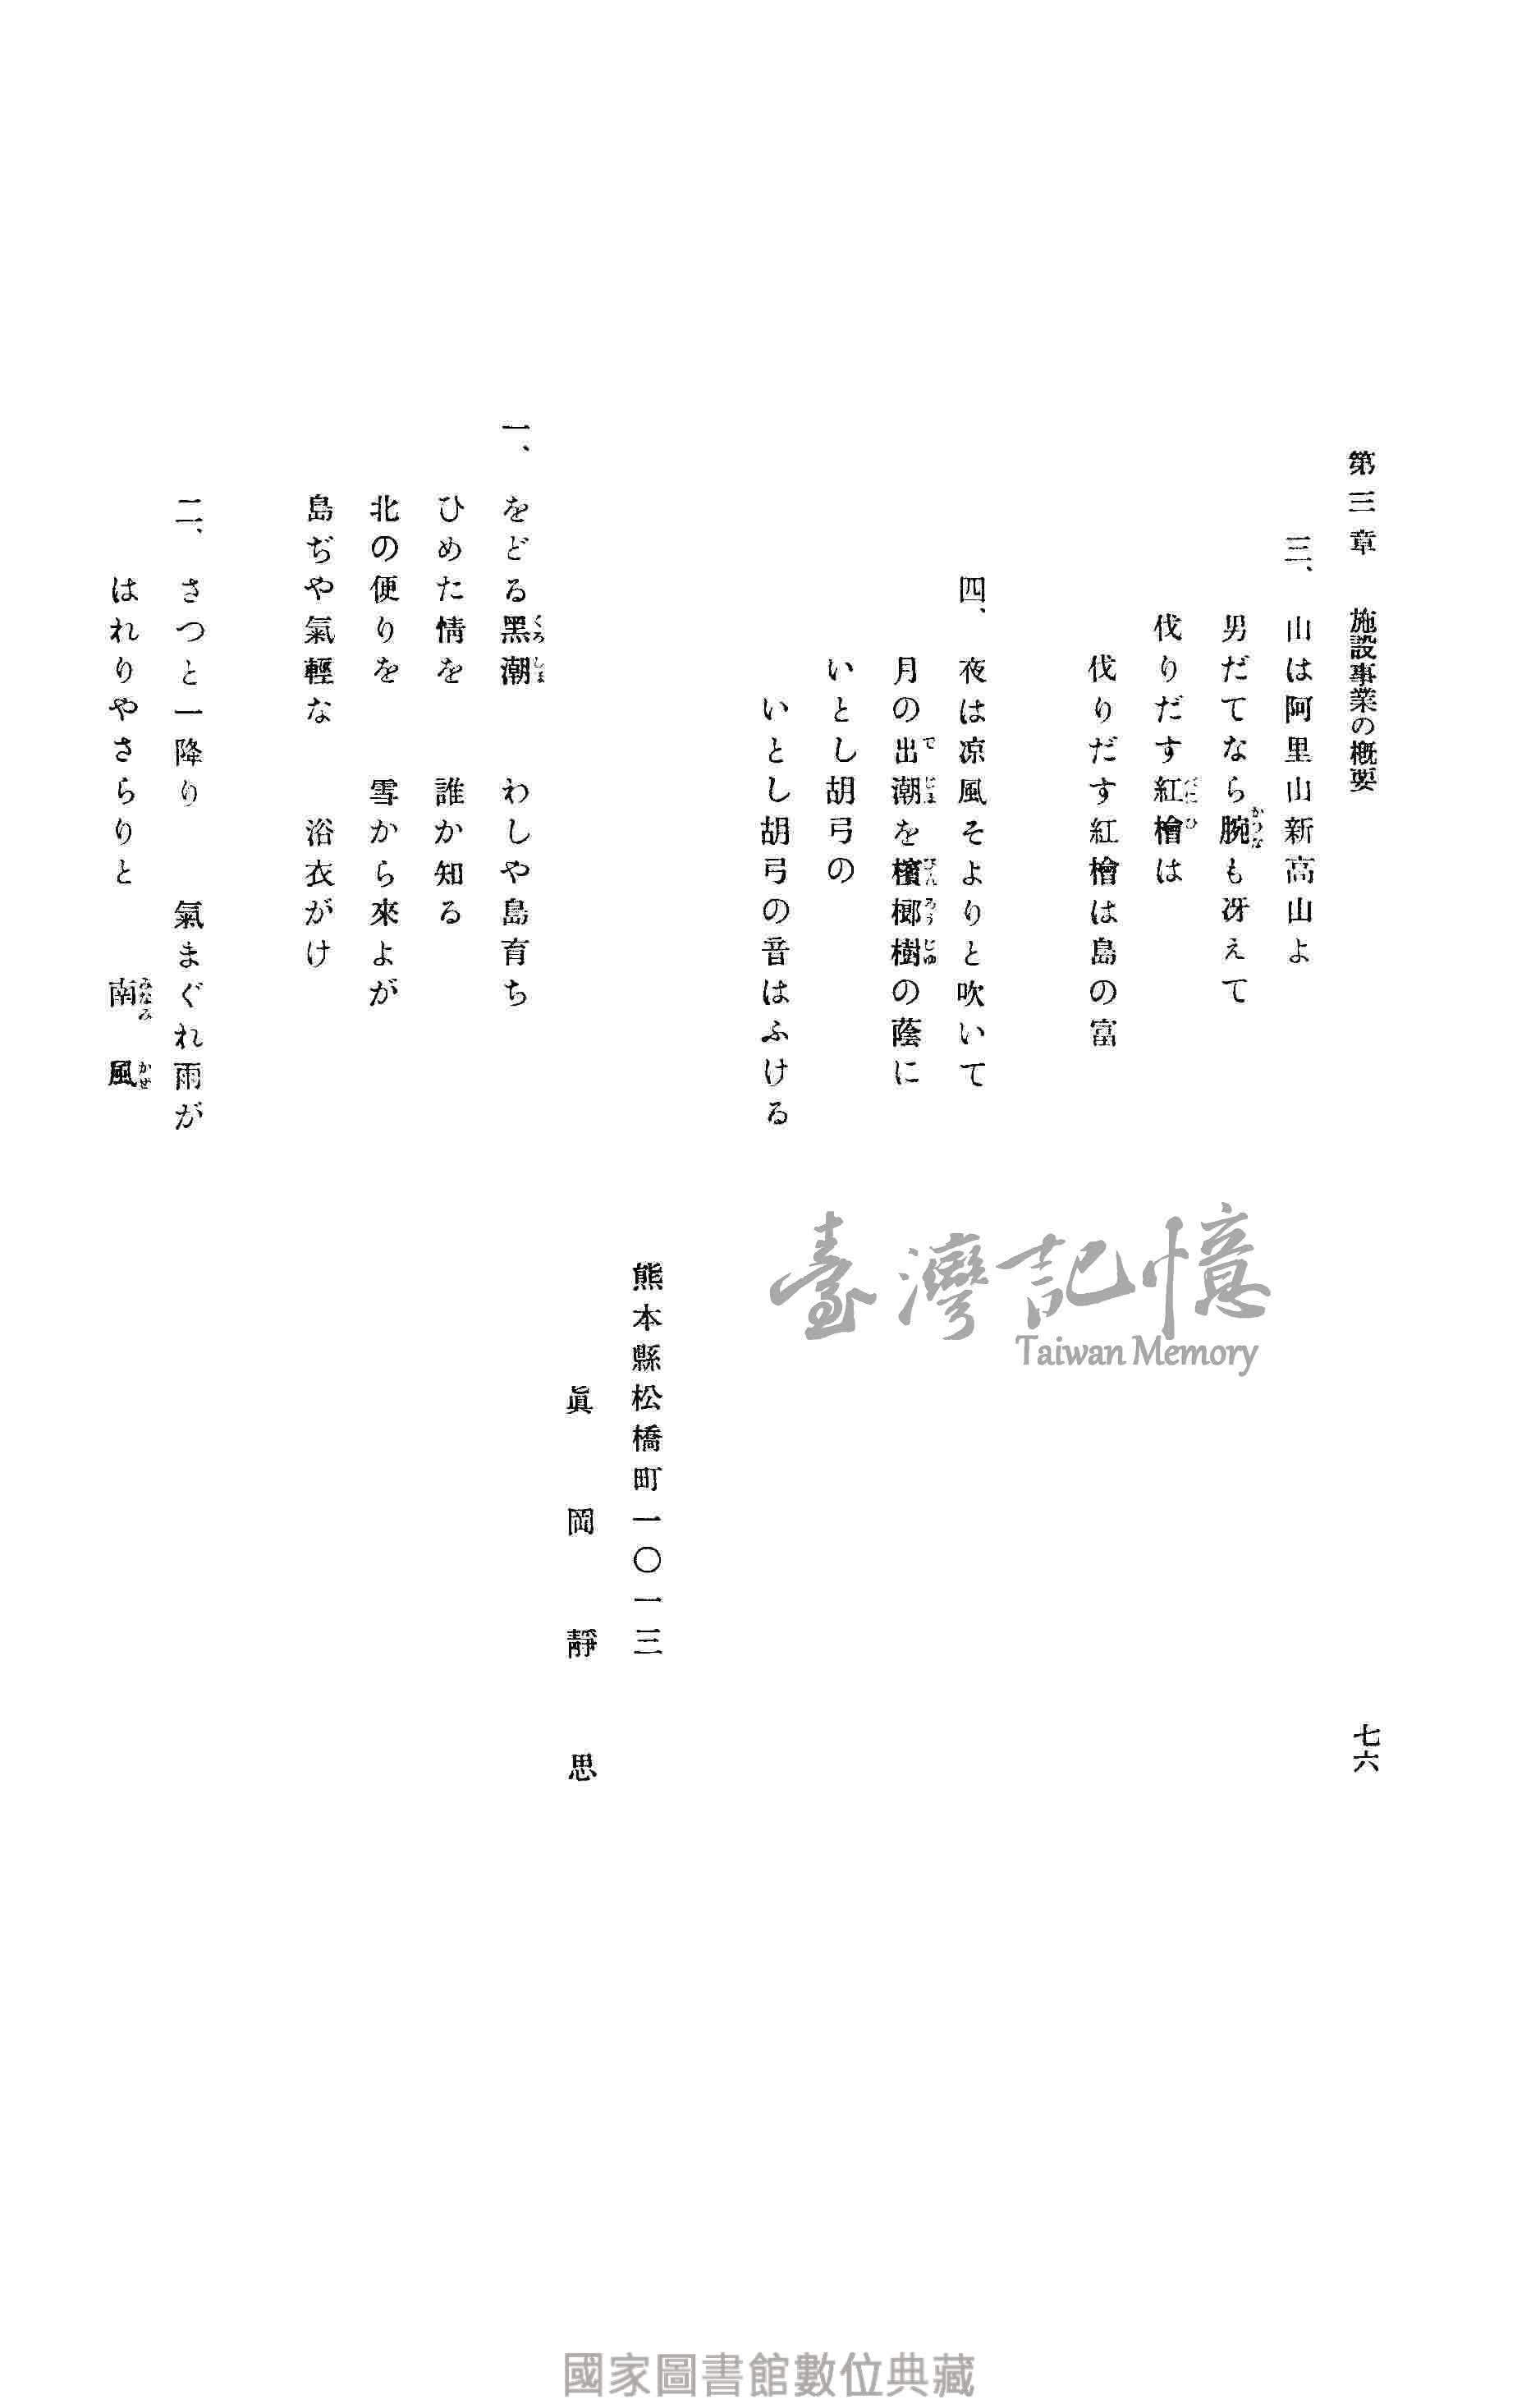 第三章 施設事業の概要
七六
三、山は阿里山新高山よ
男だてなら腕も冴えて
伐りだす紅檜は
伐りだす紅檜は島の富
四、夜は凉風そよりと吹いて
月の出潮を檳榔樹の蔭に
いとし胡弓の
いとし胡弓の音はふける
熊本縣松橋町一〇一三
眞岡靜思
一、をどる黑潮 わしや島育ち
ひめた情を 誰か知る
北の便りを 雪から來よが
島ぢや氣輕な 浴衣がけ
二、さつと一降り 氣まぐれ雨が
はれりやさらりと 南風
臺灣記憶
Taiwan Memory
國家圖書館數位典藏